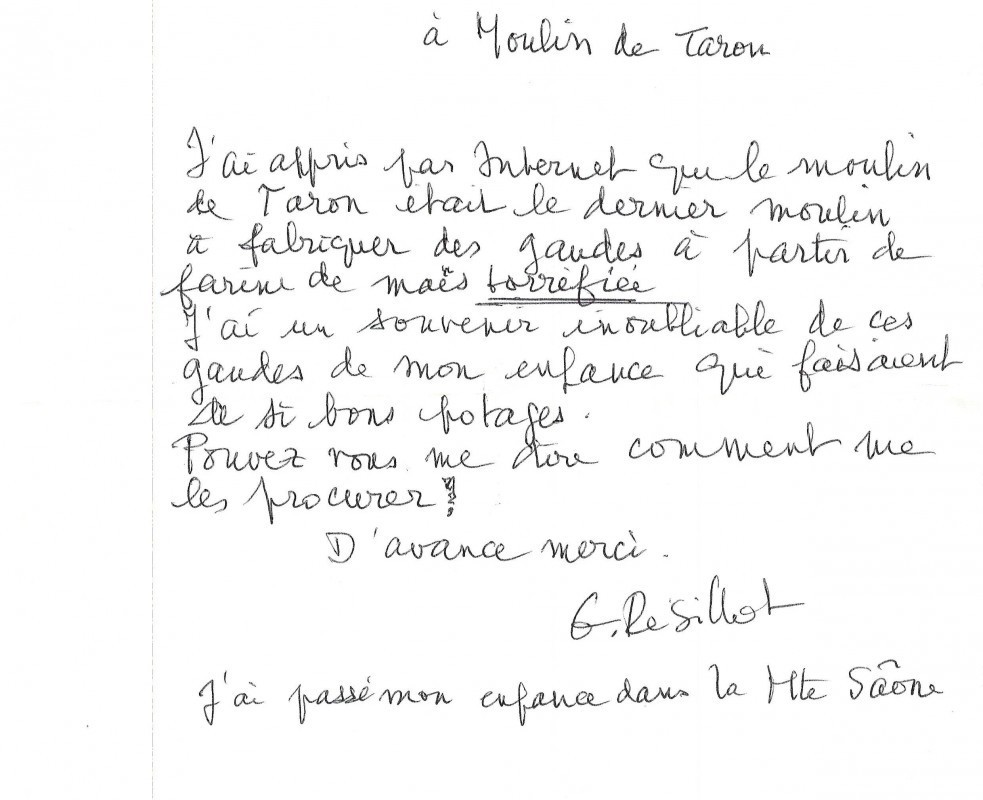 à Moulin de Taron
J'ai appris par Internet que le moulin
de Taron était le dernier moulin
à fabriquer des gaudes à partir de
farine de maïs torréfiée
J'ai un souvenir inoubliable de ces
gaudes de mon enfance qui faisaient
de si bons potages.
Pouvez vous me dire comment me
les procurer?
D'avance merci.
G. Résillot
J'ai passé mon enfance dans la Hte Saône